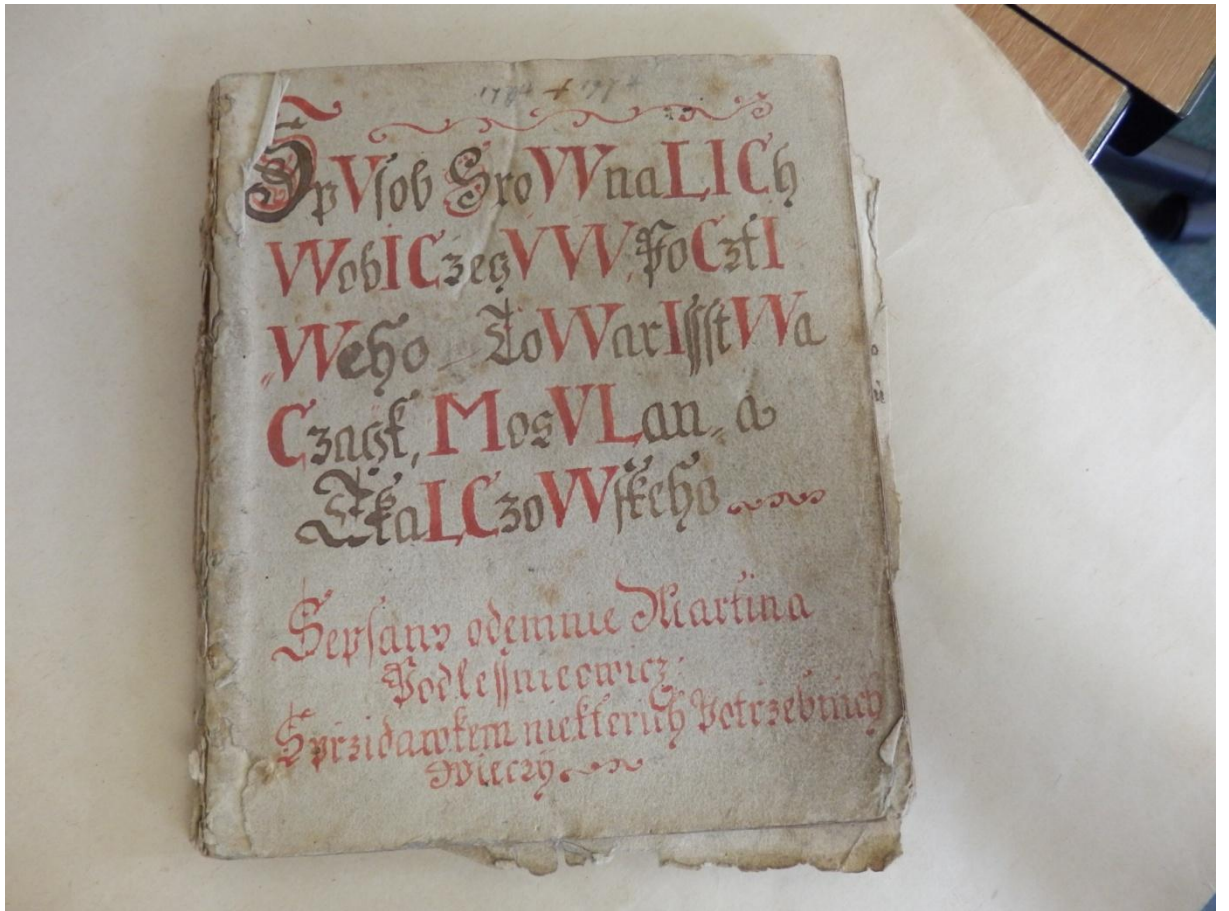 SpVsob SroVVnaLICh
VVobICzegVVV PoCztI
VVeho ToVVarIſſſtVVa
Czagk, MosVLan, a
TkaLCzoVVſkeho
Sepſany odemnie Martina
Podleſſnieowicz:
S przidawkem niekterich Potrzebnich
Wieczy.